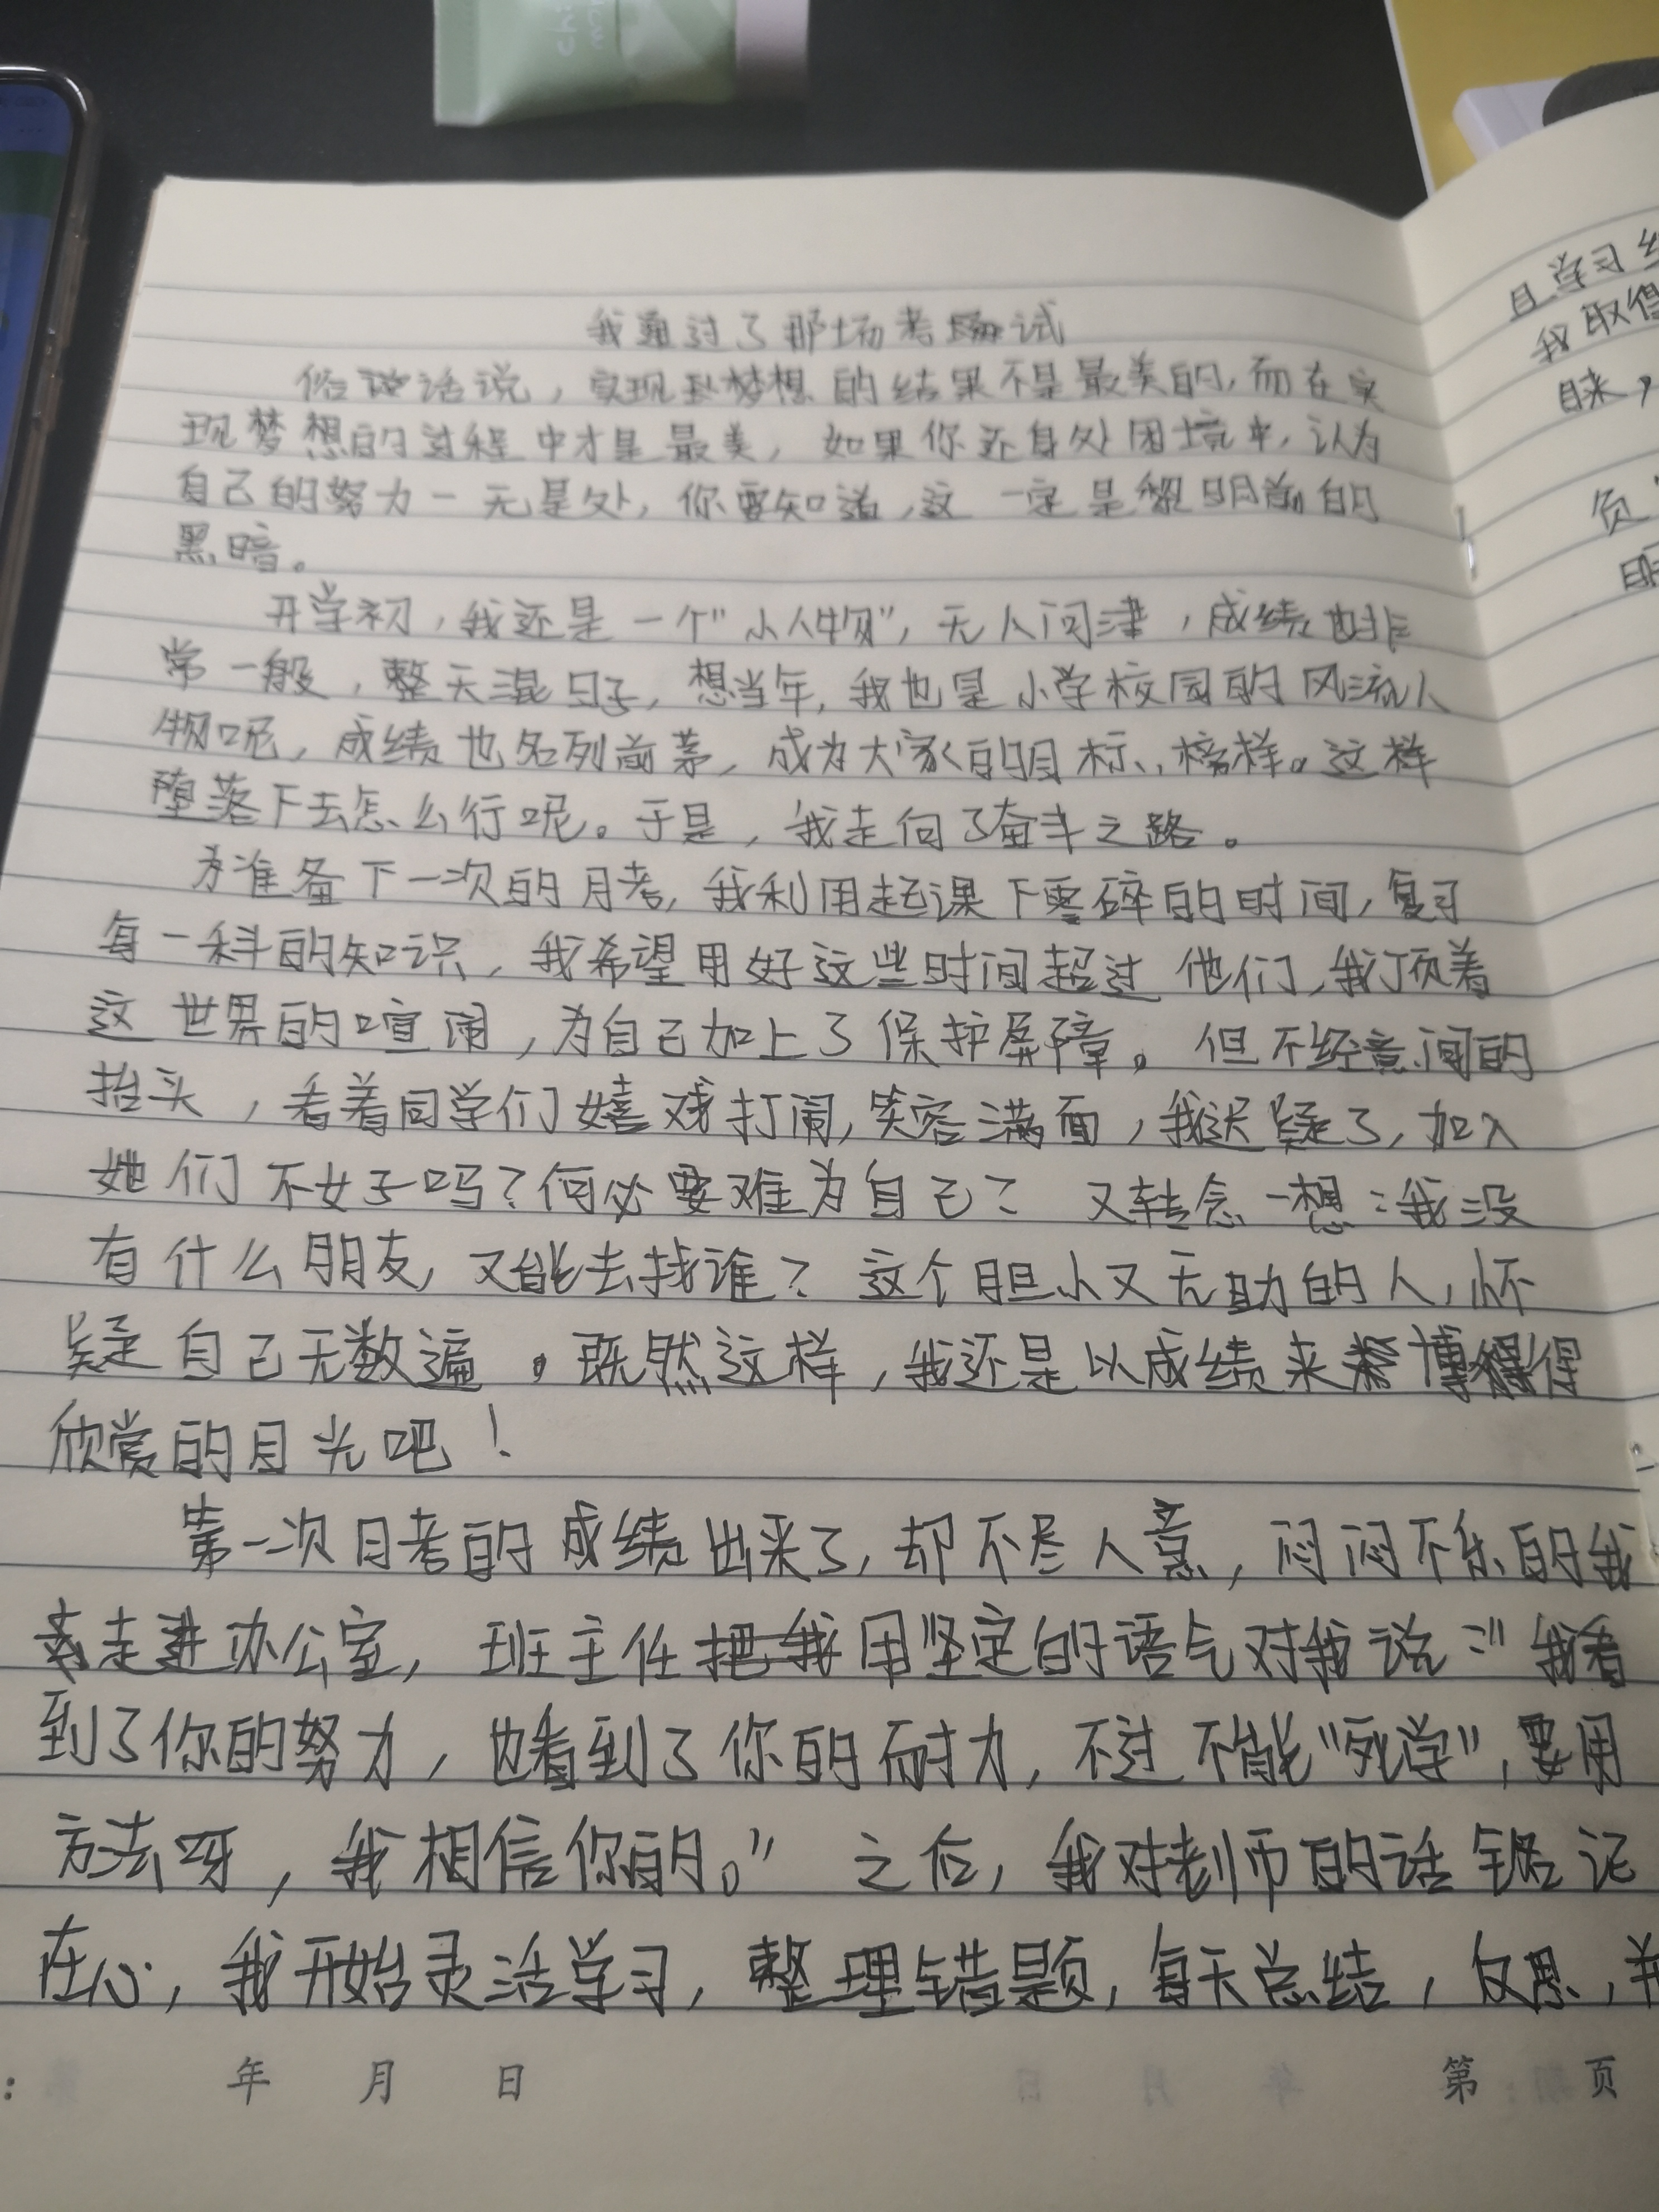 我通过了那场考试
俗话说，实现到梦想的结果不是最美的，而在实
现梦想的过程中才是最美，如果你还身处困境中，认为
自己的努力一无是处，你要知道，这一定是黎明前的
黑暗。
开学初，我还是一个“小人物”，无人问津，成绩也非
常一般，整天混日子，想当年，我也是小学校园的风流人
物呢，成绩也名列前茅，成为大家的目标、榜样。这样
堕落下去怎么行呢。于是，我走向了奋斗之路。
为准备下一次的月考，我利用起课下零碎的时间，复习
每一科的知识，我希望用好这些时间超过他们，我顶着
这世界的喧闹，为自己加上了保护屏障。但不经意间的
抬头，看着同学们嬉戏打闹，笑容满面，我迟疑了，加入
她们不好吗？何必要难为自己？又转念一想：我没
有什么朋友，又能去找谁？这个胆小又无助的人，怀
疑自己无数遍。既然这样，我还是以成绩来博得
欣赏的目光吧！
第一次月考的成绩出来了，却不尽人意，闷闷不乐的我
走进办公室，班主任用坚定的语气对我说：“我看
到了你的努力，也看到了你的耐力，不过不能“死学”，要用
方法呀，我相信你的。”之后，我对老师的话铭记
在心，我开始灵活学习，整理错题，每天总结，反思，并
年 月 日
第 页
且学习
我取得
目来，
负